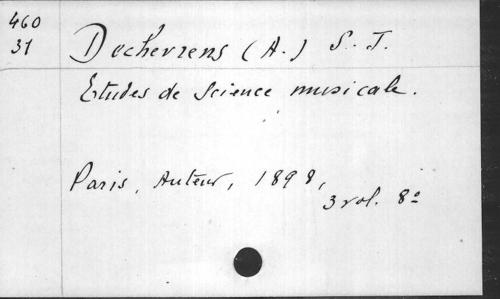 460
31
Dechevrens (A.) S. J.
Etudes de Science musicale.
Paris, Auteur, 1898,
3 vol. 8º